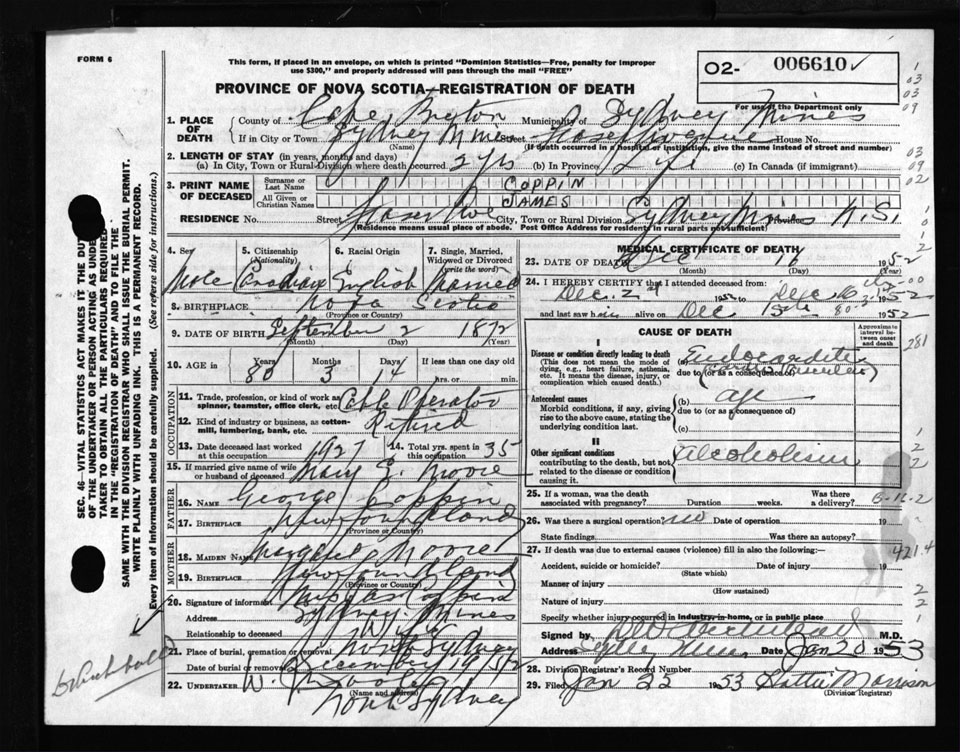 FORM 6
This form, if placed in an envelope, on which is printed "Dominion Statistics—Free, penalty for improper
use $300," and properly addressed will pass through the mail "FREE"
O2- 006610
PROVINCE OF NOVA SCOTIA—REGISTRATION OF DEATH
For use of the Department only
1. PLACE OF DEATH
County of Cape Breton Municipality of Sydney Mines
If in City or Town Sydney Mines Street Fraser Avenue House No.
(Name) (If death occurred in a hospital or institution, give the name instead of street and number)
2. LENGTH OF STAY (in years, months and days)
(a) In City, Town or Rural Division where death occurred 2 yrs (b) In Province Life (c) In Canada (if immigrant)
3. PRINT NAME OF DECEASED
Surname or Last Name COPPIN
All Given or Christian Names JAMES
RESIDENCE No. Street Fraser Ave City, Town or Rural Division Sydney Mines Province N.S.
(Residence means usual place of abode. Post Office Address for residents in rural parts not sufficient)
4. Sex 5. Citizenship (Nationality) 6. Racial Origin 7. Single, Married, Widowed or Divorced (write the word)
Male Canadian English Married
8. BIRTHPLACE Nova Scotia
(Province or Country)
9. DATE OF BIRTH September 2 1872
(Month) (Day) (Year)
10. AGE in Years Months Days If less than one day old
80 3 14 hrs. or min.
OCCUPATION
11. Trade, profession, or kind of work as spinner, teamster, office clerk, etc. Cable Operator
12. Kind of industry or business, as cotton-mill, lumbering, bank, etc. Retired
13. Date deceased last worked at this occupation 1927 14. Total yrs. spent in this occupation 35
15. If married give name of wife or husband of deceased Mary E. Moore
FATHER
16. NAME George Coppin
17. BIRTHPLACE Newfoundland
(Province or Country)
MOTHER
18. MAIDEN NAME Margaret Moore
19. BIRTHPLACE Newfoundland
(Province or Country)
20. Signature of informant Mrs Jas Coppin
Address Sydney Mines
Relationship to deceased Wife
21. Place of burial, cremation or removal North Sydney
Date of burial or removal December 19 1952
22. UNDERTAKER W.
(Name and Address)
North Sydney
MEDICAL CERTIFICATE OF DEATH
23. DATE OF DEATH Dec 16 1952
(Month) (Day) (Year)
24. I HEREBY CERTIFY that I attended deceased from:
Dec. 2nd 1952 to Dec 16 1952
and last saw him alive on Dec 15th 1952
CAUSE OF DEATH
Approximate interval between onset and death
I
Disease or condition directly leading to death
(This does not mean the mode of dying, e.g., heart failure, asthenia, etc. It means the disease, injury, or complication which caused death.)
(a) Endocarditis
due to (or as a consequence of)
Antecedent causes
Morbid conditions, if any, giving rise to the above cause, stating the underlying condition last.
(b) age
due to (or as a consequence of)
(c)
II
Other significant conditions
contributing to the death, but not related to the disease or condition causing it.
Alcoholism
25. If a woman, was the death associated with pregnancy? Duration weeks. Was there a delivery?
26. Was there a surgical operation? no Date of operation 19
State findings Was there an autopsy?
27. If death was due to external causes (violence) fill in also the following:—
Accident, suicide or homicide? Date of injury 19
(State which)
Manner of injury
(How sustained)
Nature of injury
Specify whether injury occurred in Industry, in home, or in public place
Signed by M.D.
Address Sydney Mines Date Jan 20 1953
28. Division Registrar's Record Number
29. Filed Jan 22 1953 Hattie Morrison
(Division Registrar)
SEC. 46—VITAL STATISTICS ACT MAKES IT THE DUTY
OF THE UNDERTAKER OR PERSON ACTING AS UNDERTAKER
TO OBTAIN ALL THE PARTICULARS REQUIRED
IN THE "REGISTRATION OF DEATH" AND TO FILE THE
SAME WITH THE DIVISION REGISTRAR WHO SHALL ISSUE THE BURIAL PERMIT.
WRITE PLAINLY WITH UNFADING INK. THIS IS A PERMANENT RECORD.
Every item of information should be carefully supplied. (See reverse side for instructions.)
1
03
03
09
03
09
02
281
B-12-2
421.4